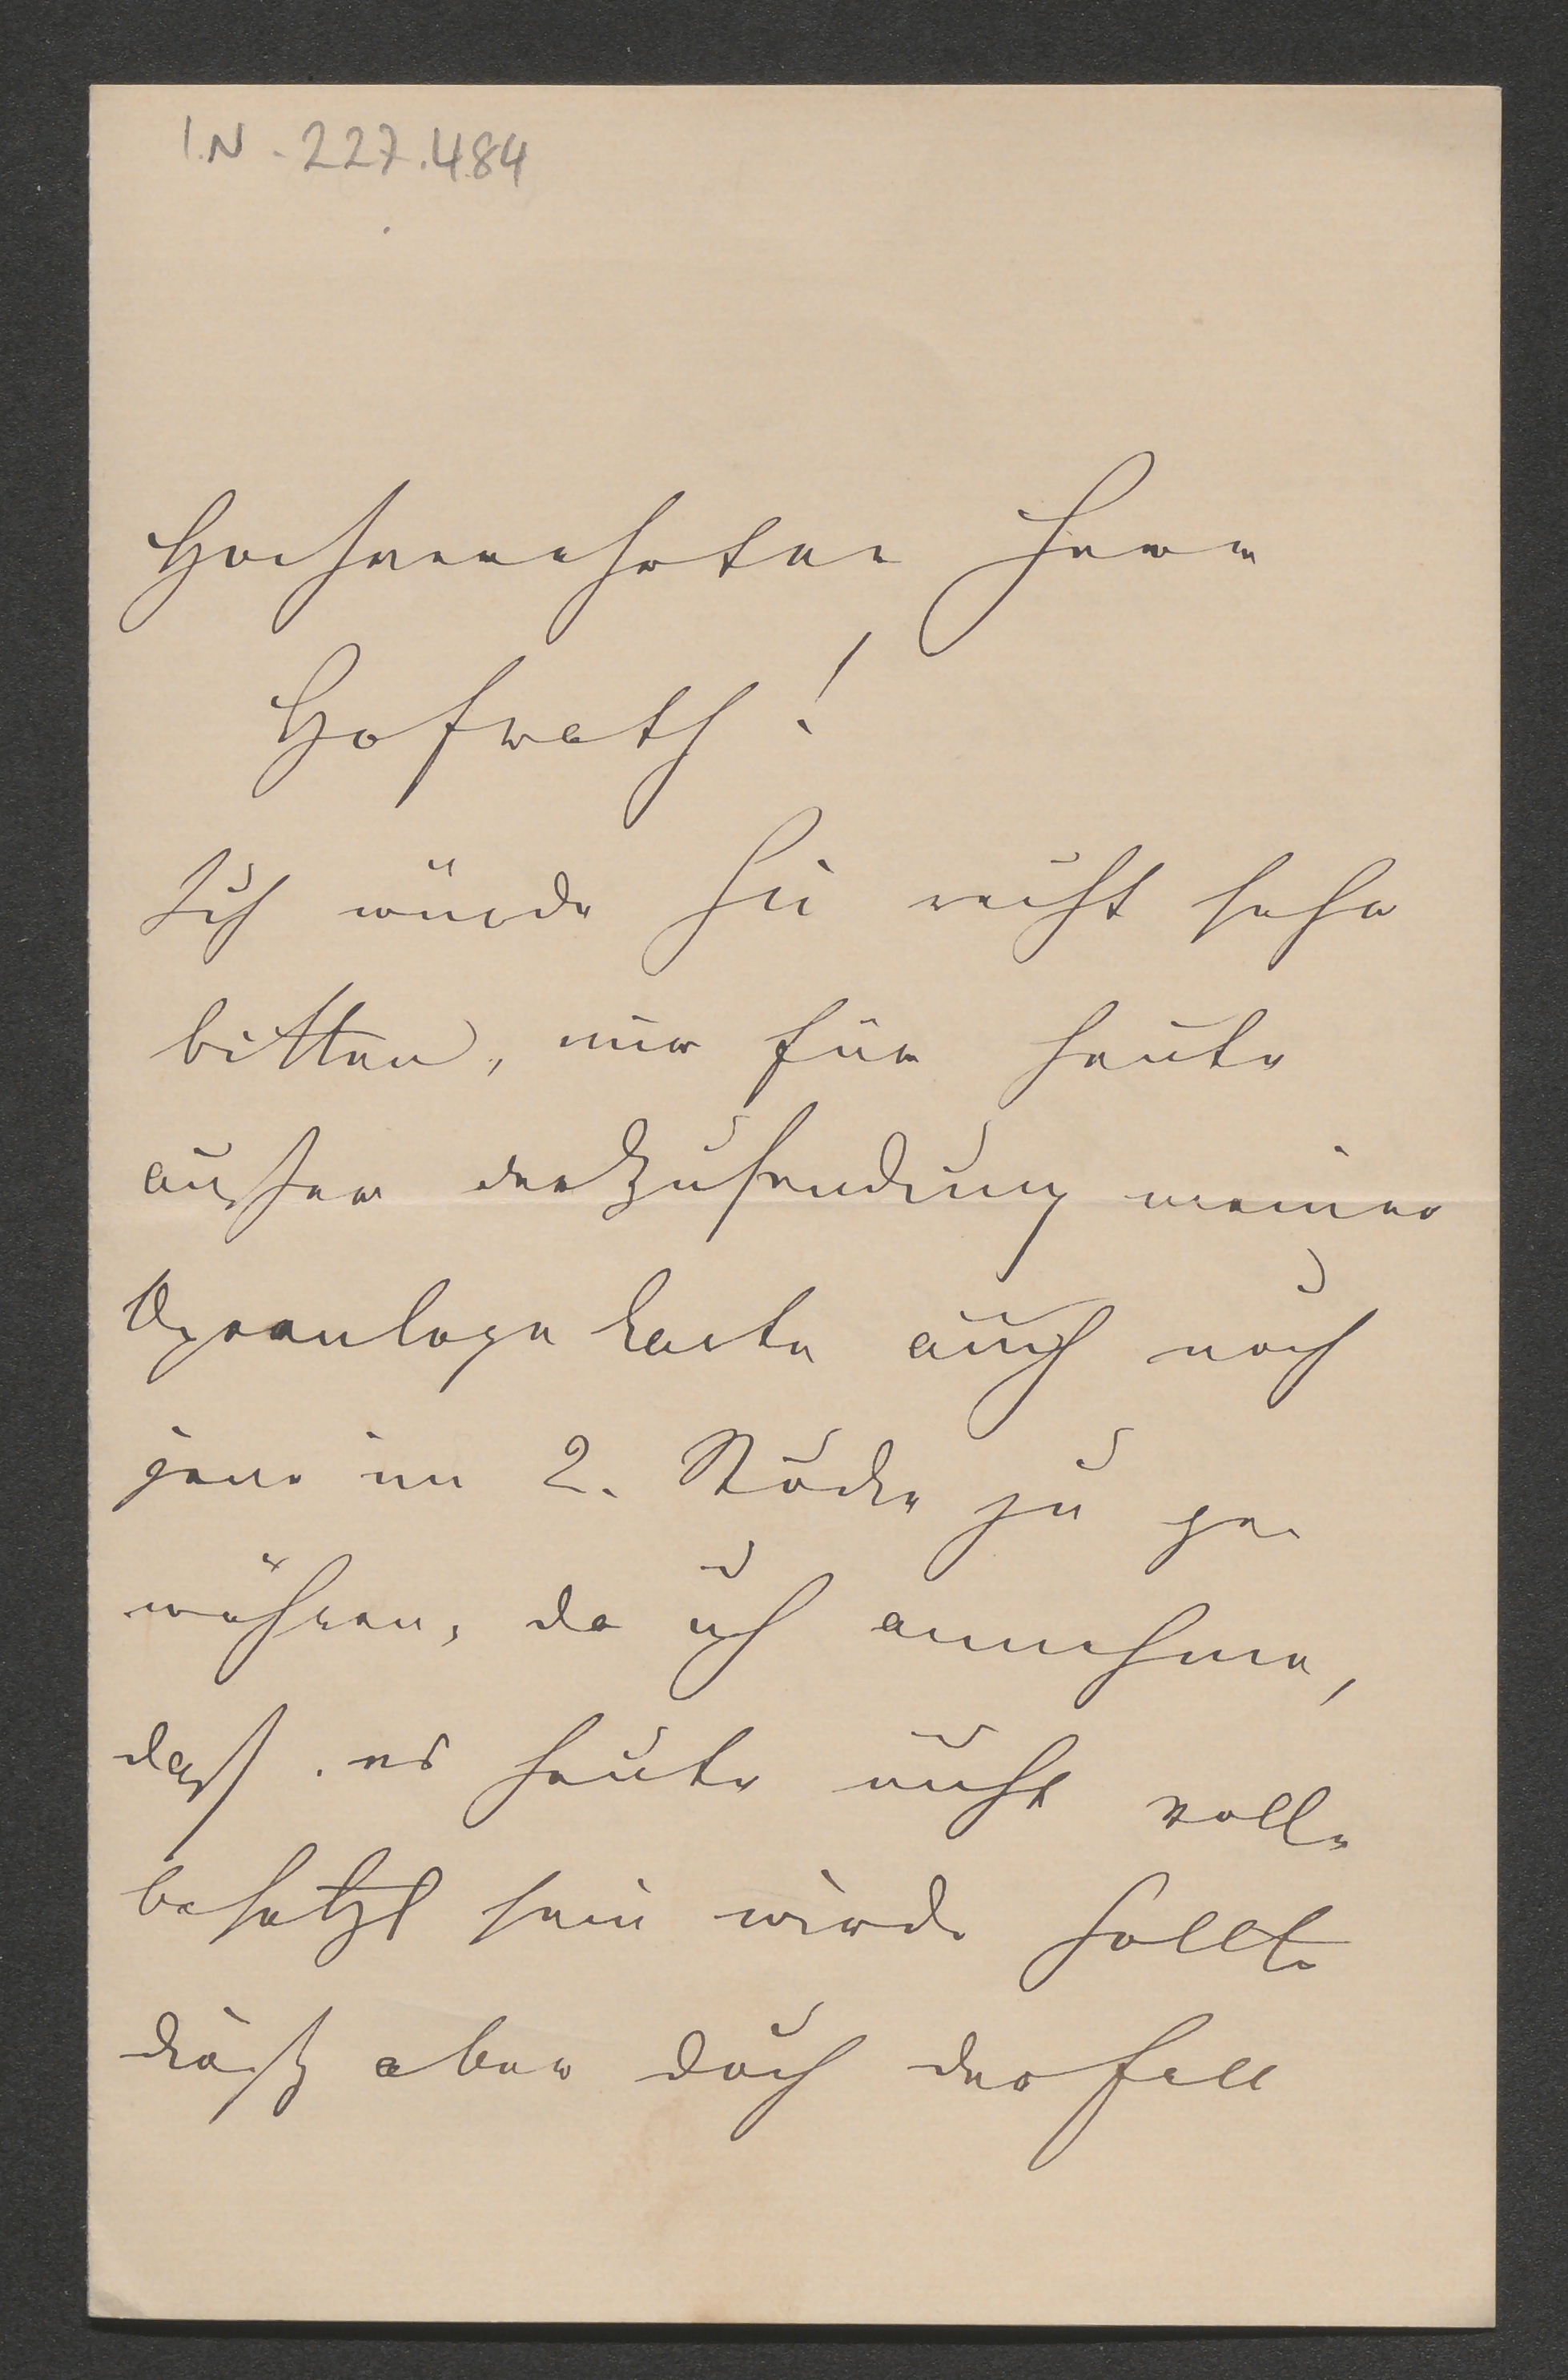 I.N. 227.484
Hochverehrter Herr
Hofrath!
Ich würde Sie recht sehr
bitten, mir für heute
ausser der Zusendung meiner
Opernloge Karte auch noch
jene im 2. Stocke zu ge
währen, da ich annehme,
dass es heute nicht voll
besetzt sein wird. Sollte
diess aber doch der Fall